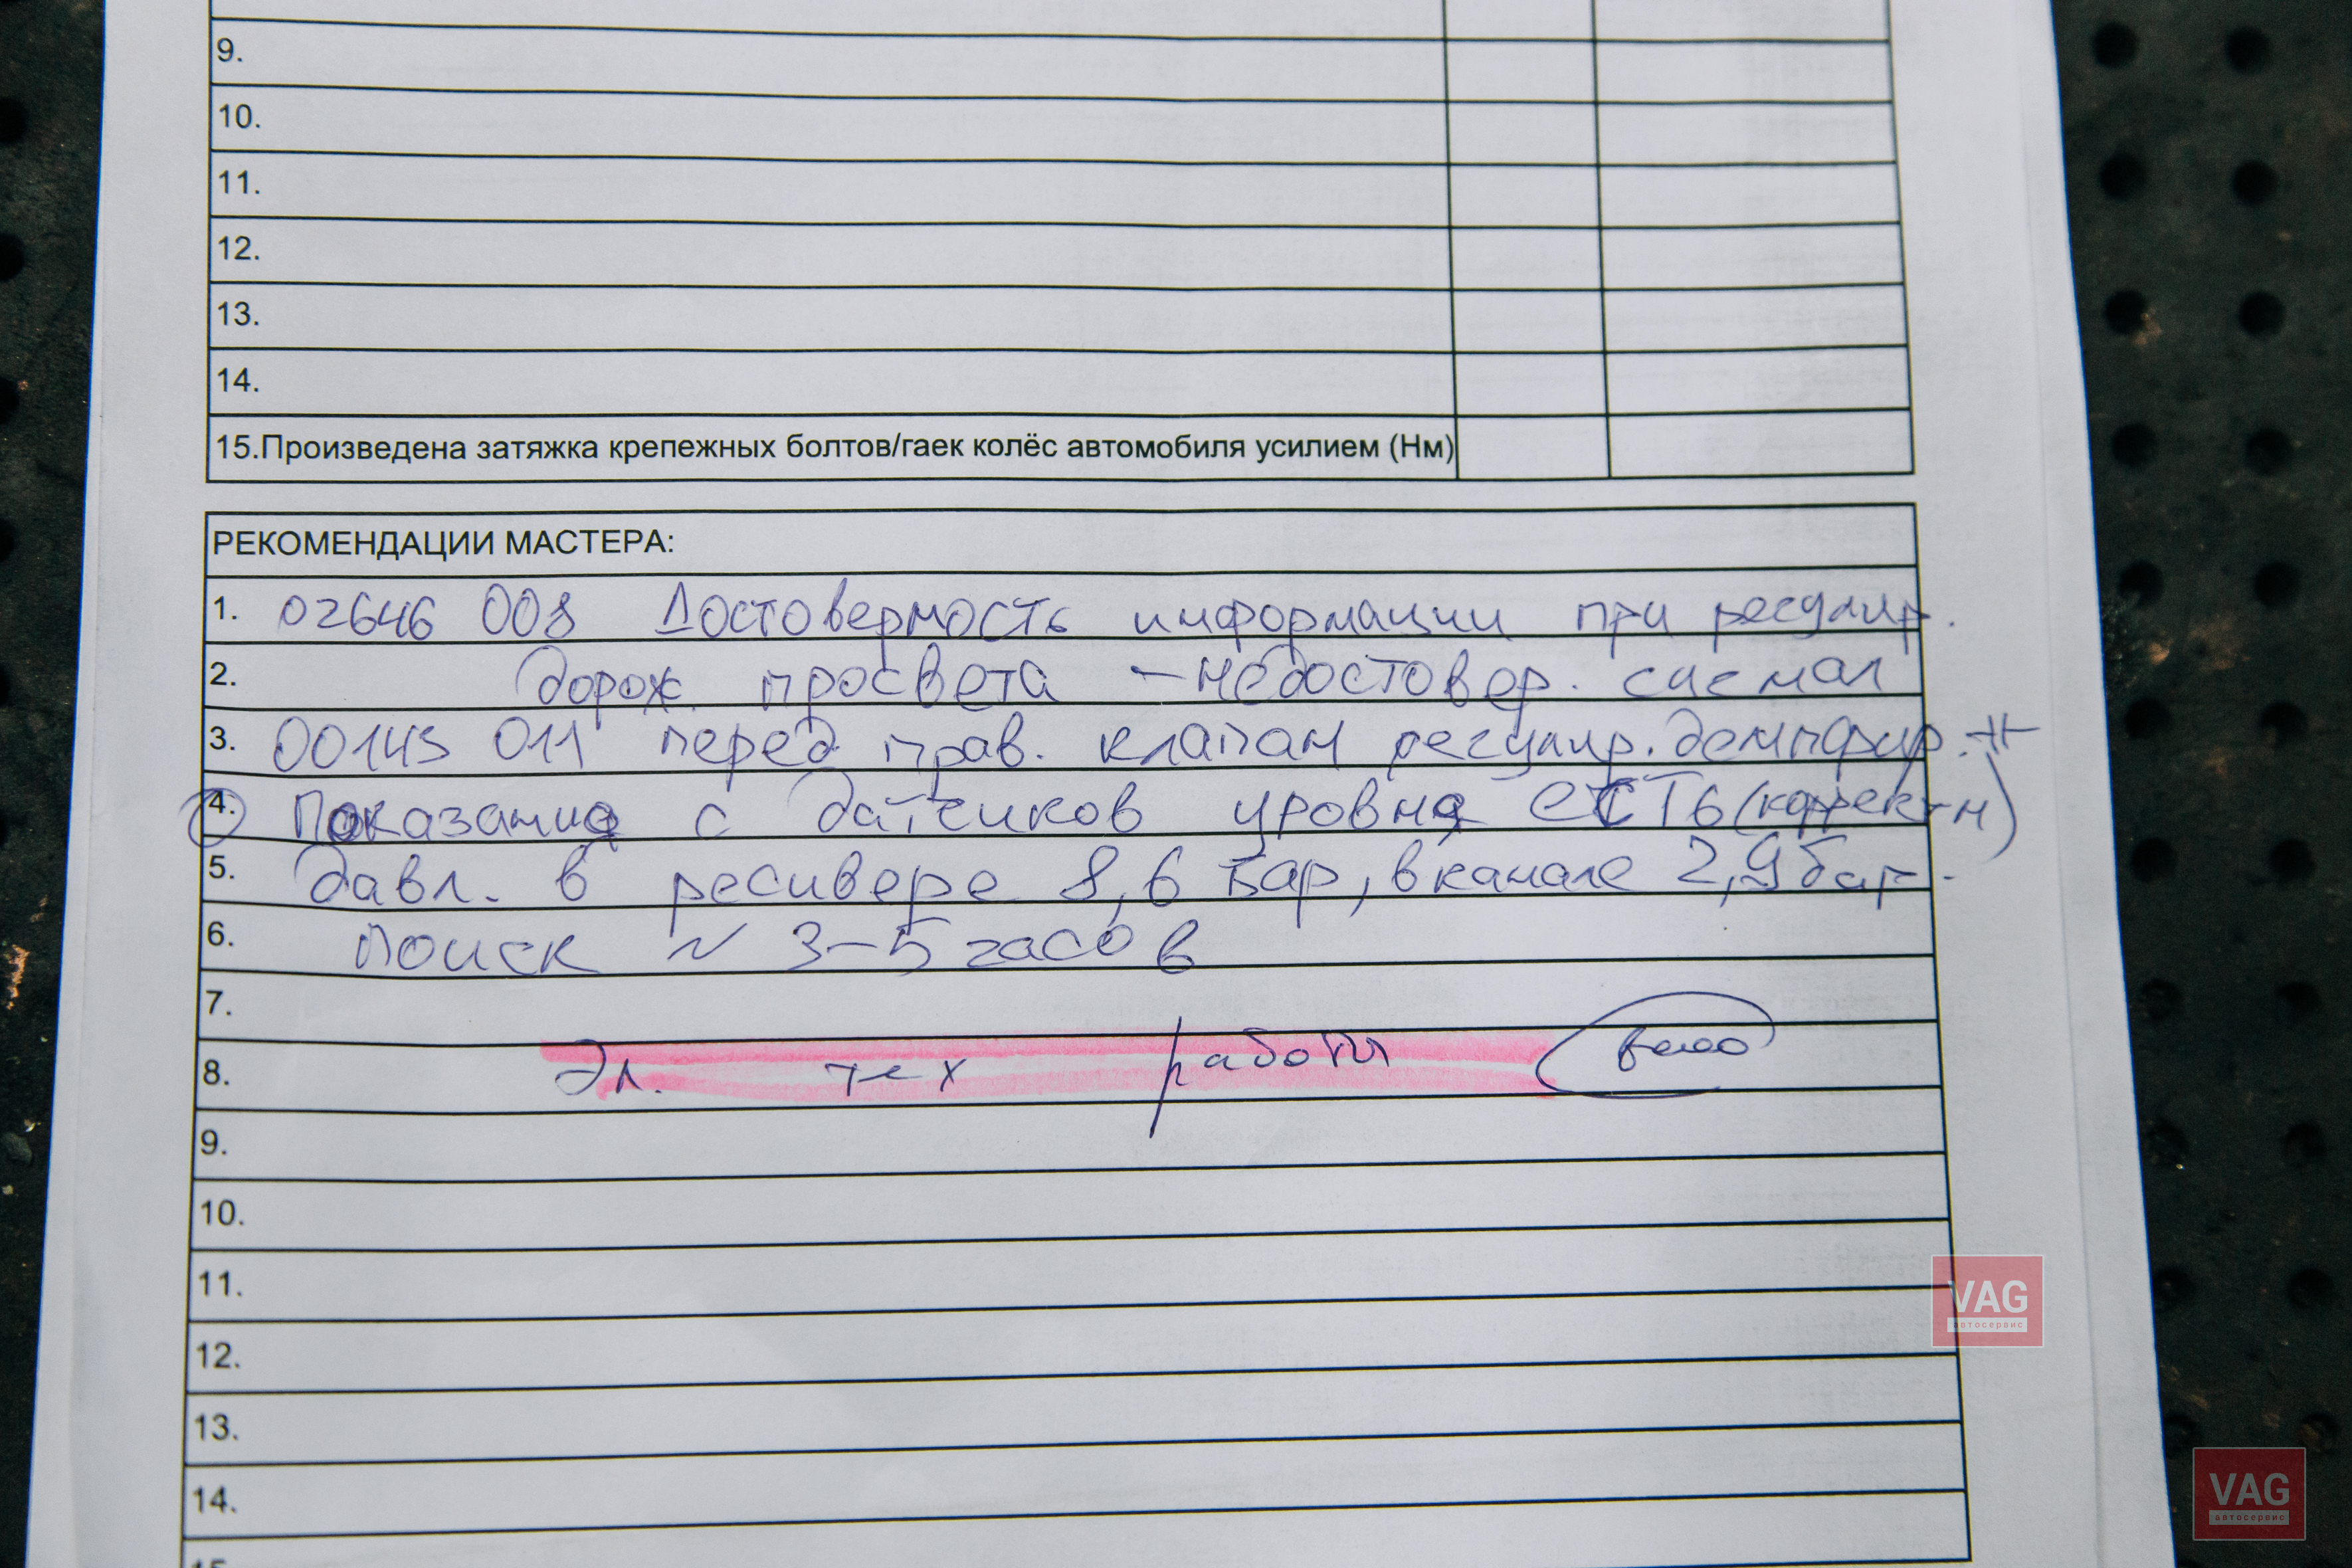 9.
10.
11.
12.
13.
14.
15.Произведена затяжка крепежных болтов/гаек колёс автомобиля усилием (Нм)
РЕКОМЕНДАЦИИ МАСТЕРА:
1. 02646 008 Достоверность информации при регулир.
2. дорож. просвета - недостовер. сигнал
3. 00143 011 перед прав. клапан регулир. демпфир.
4. Показания с датчиков уровня есть (коррект-н)
5. давл. в ресивере 8,6 Бар, в канале 2,9 бар.
6. Поиск ~ 3-5 часов
7.
8. Эл. тех работы
9.
10.
11.
12.
13.
14.
15.
VAG
автосервис
VAG
автосервис